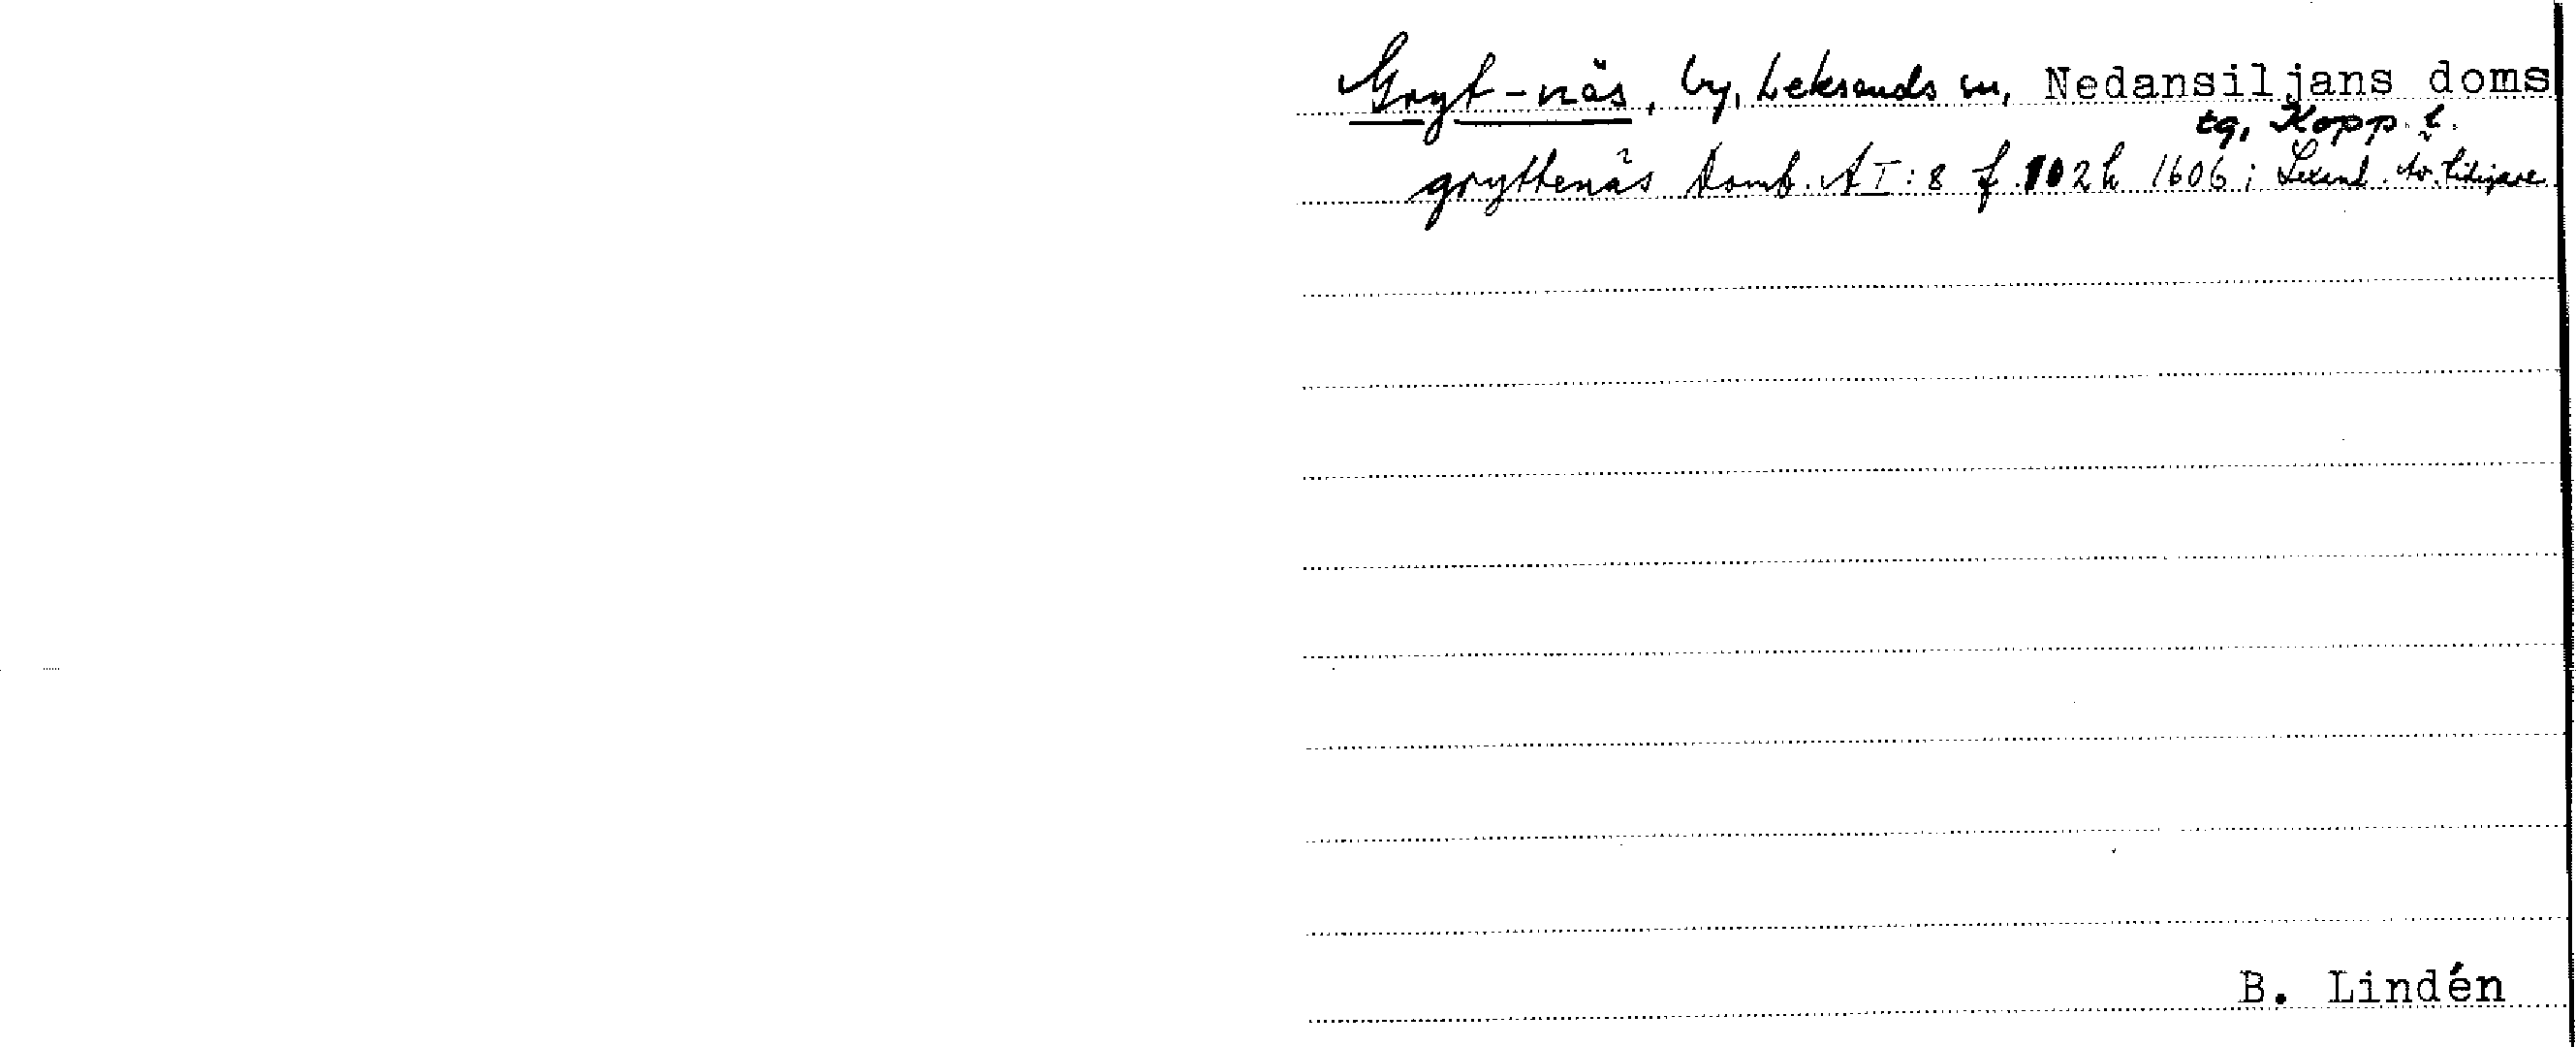 Gryt-näs, by, Leksands sn, Nedansiljans doms
tg, Kopp. l.
gryttenäs Domb. AI:8 f. 102 b 1606; Lexand.
B. Lindén